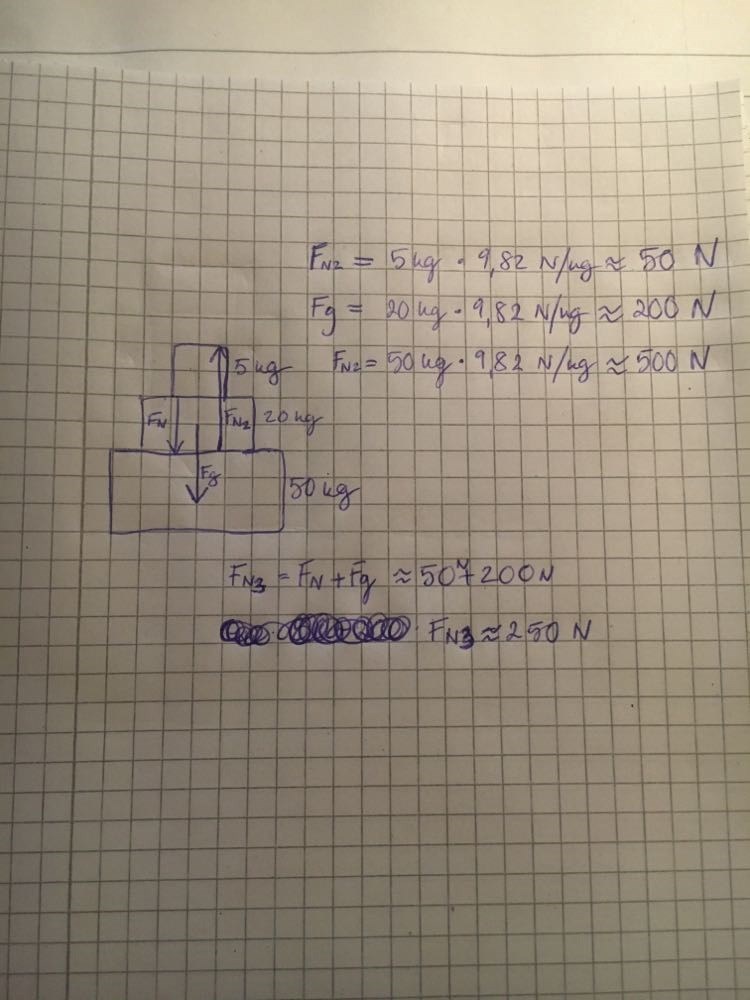 F_N2 = 5 kg · 9,82 N/kg ≈ 50 N
F_g = 20 kg · 9,82 N/kg ≈ 200 N
F_N2 = 50 kg · 9,82 N/kg ≈ 500 N
5 kg
F_N F_N2 20 kg
F_g 50 kg
F_N3 = F_N + F_g ≈ 50N + 200 N
F_N3 ≈ 250 N